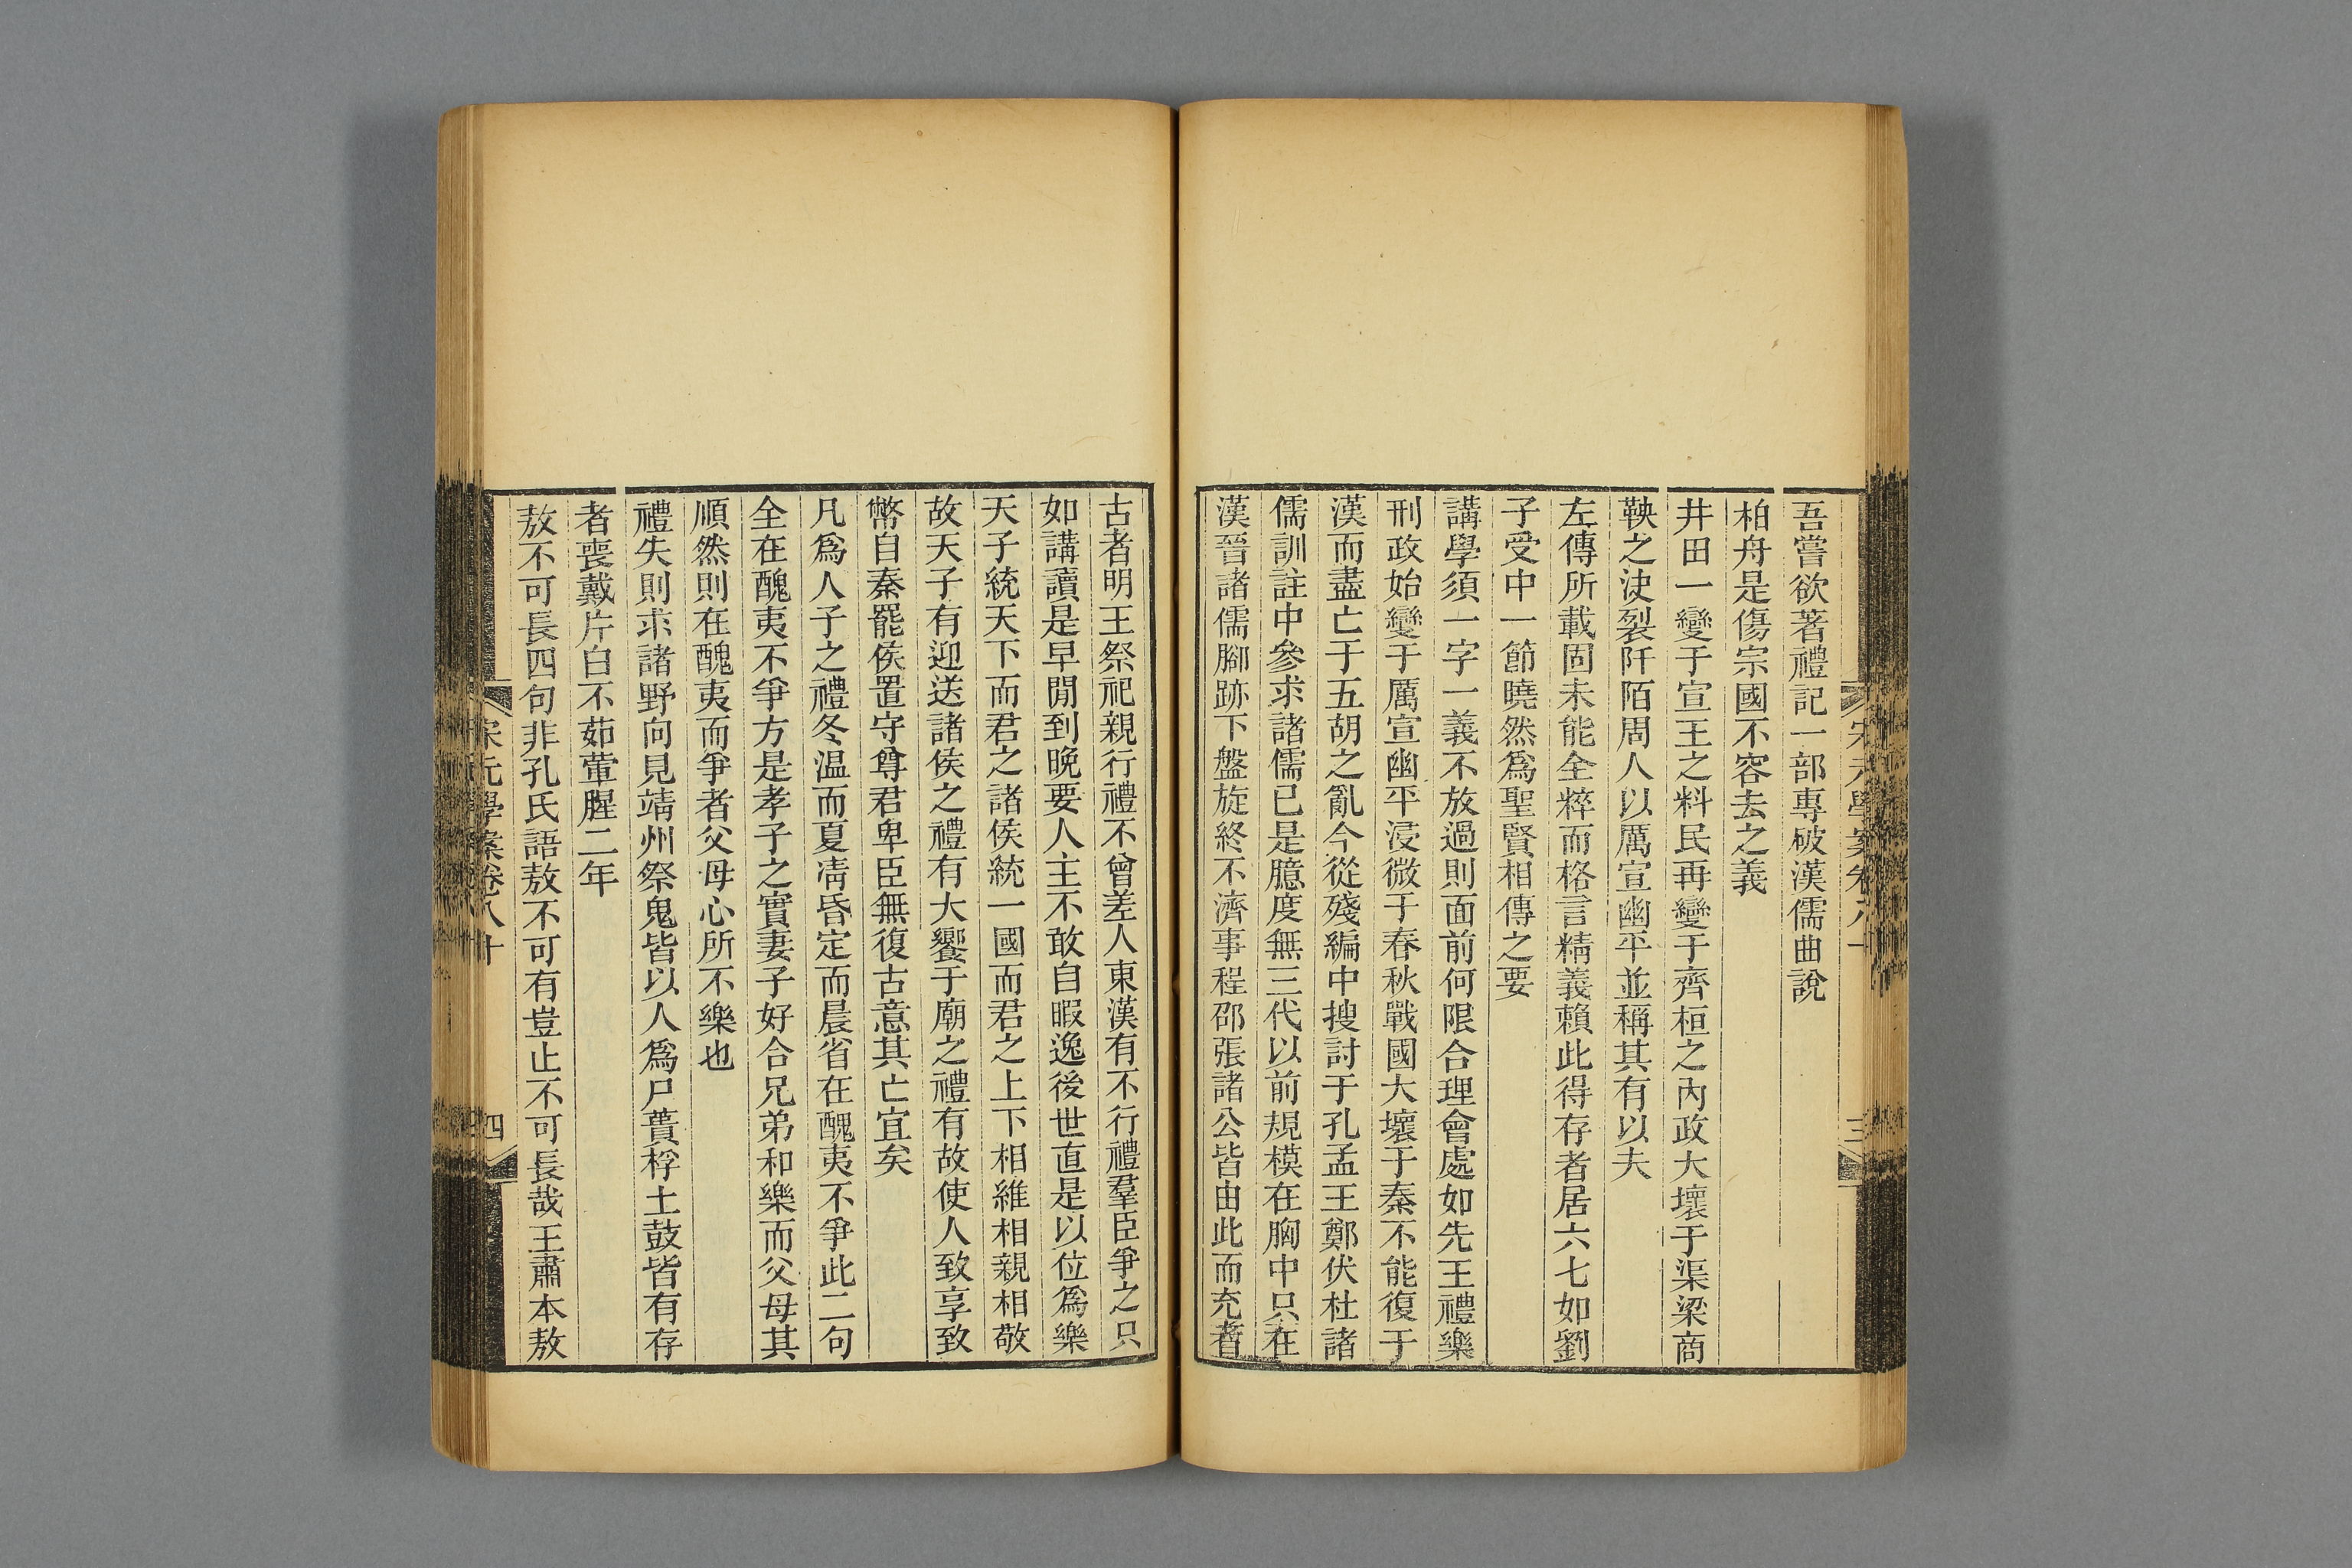 吾嘗欲著禮記一部專破漢儒曲說
柏舟是傷宗國不容去之義
井田一變于宣王之料民再變于齊桓之內政大壞于渠梁商
鞅之決裂阡陌周人以厲宣幽平並稱其有以夫
左傳所載固未能全粹而格言精義賴此得存者居六七如劉
子受中一節曉然爲聖賢相傳之要
講學須一字一義不放過則面前何限合理會處如先王禮樂
刑政始變于厲宣幽平浸微于春秋戰國大壞于秦不能復于
漢而盡亡于五胡之亂今從殘編中搜討于孔孟王鄭伏杜諸
儒訓註中參求諸儒已是臆度無三代以前規模在胸中只在
漢晉諸儒腳跡下盤旋終不濟事程邵張諸公皆由此而充者
古者明王祭祀親行禮不曾差人東漢有不行禮羣臣爭之只
如講讀是早閒到晚要人主不敢自暇逸後世直是以位爲樂
天子統天下而君之諸侯統一國而君之上下相維相親相敬
故天子有迎送諸侯之禮有大饗于廟之禮有故使人致享致
幣自秦罷侯置守尊君卑臣無復古意其亡宜矣
凡爲人子之禮冬温而夏凊昏定而晨省在醜夷不爭此二句
全在醜夷不爭方是孝子之實妻子好合兄弟和樂而父母其
順然則在醜夷而爭者父母心所不樂也
禮失則求諸野向見靖州祭鬼皆以人爲尸蕢桴土鼓皆有存
者喪戴片白不茹葷腥二年
敖不可長四句非孔氏語敖不可有豈止不可長哉王肅本敖
宋元學案卷八十
四